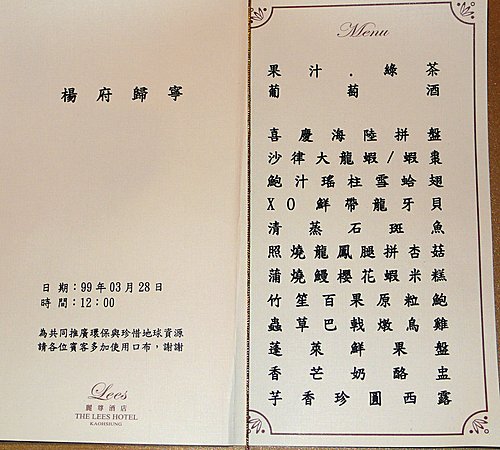 楊府歸寧
日期:99年03月28日
時間:12:00
為共同推廣環保與珍惜地球資源
請各位賓客多加使用口布,謝謝
Lees
麗尊酒店
THE LEES HOTEL
KAOHSIUNG
Menu
果汁.綠茶
葡萄酒
喜慶海陸拼盤
沙律大龍蝦/蝦棗
鮑汁瑤柱雪蛤翅
XO鮮帶龍牙貝
清蒸石斑魚
照燒龍鳳腿拼杏菇
蒲燒鰻櫻花蝦米糕
竹笙百果原粒鮑
蟲草巴戟燉烏雞
蓬萊鮮果盤
香芒奶酪盅
芋香珍圓西露